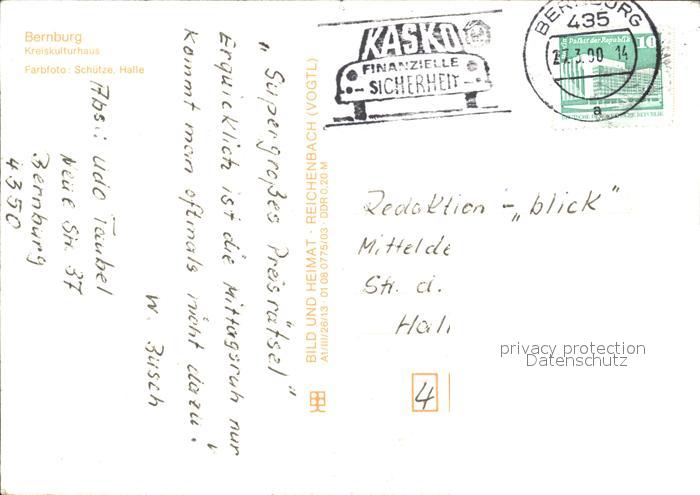 Bernburg
Kreiskulturhaus
Farbfoto: Schütze, Halle
KASKO
FINANZIELLE
SICHERHEIT
BERNBURG
435
27.3.90 14
a
Palast der Republik 10
DEUTSCHE DEMOKRATISCHE REPUBLIK
„Supergroßes Preisrätsel"
Erquicklich ist die Mittagsruh nur
kommt man oftmals nicht dazu!
W. Busch
Abs.: Udo Taubel
Neue Str. 37
Bernburg
4350
BILD UND HEIMAT · REICHENBACH (VOGTL)
A1/III/26/13 · 01 08 0775/03 · DDR 0,20 M
Redaktion - „blick"
Mittelde
Str. d.
Hall
4
privacy protection
Datenschutz